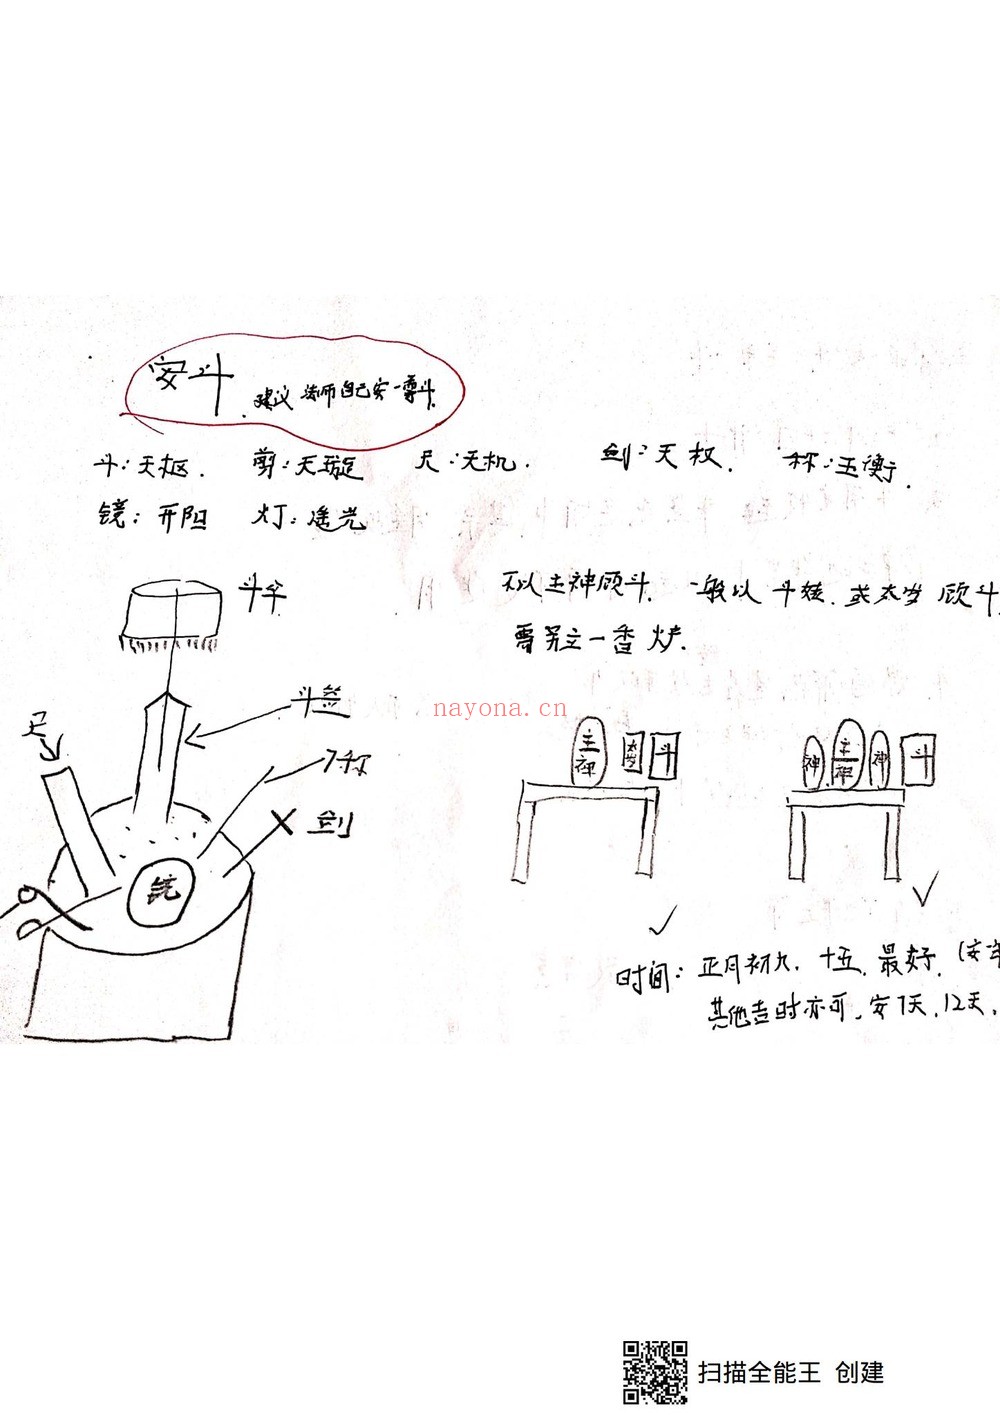 安斗
建议法师自己安一尊斗.
斗:天枢. 剪:天璇 尺:天机. 剑:天权. 称:玉衡.
镜:开阳 灯:遥光
斗伞
不以主神顾斗. 一般以 斗娃. 或太岁 顾斗
需另立一香炉.
斗签
nayona.cn
尺
称
剑
镜
主神 太岁 斗
神 主神 神 斗
时间: 正月初九. 十五. 最好. (安
其他吉时亦可. 安7天. 12天.
扫描全能王 创建